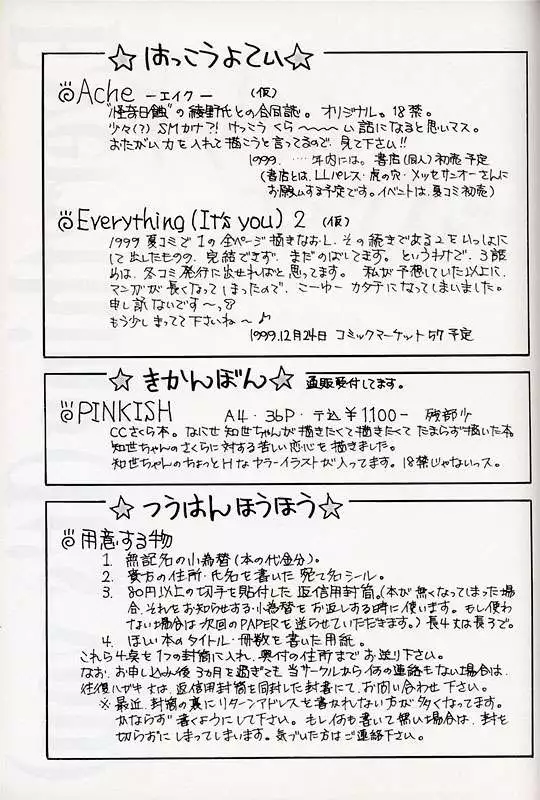 ☆ はっこうよてい ☆
Ache －エイク－ （仮）
"怪奇日蝕"の綾野氏との合同誌。オリジナル。18禁。
少々(?) SMカナ?! けっこうくら〜〜〜い話になると思いマス。
おたがい力を入れて描こうと言ってるので、見て下さい!!
1999. ‥‥年内には。書店(同人)初売予定
(書店とは、LLパレス・虎の穴・メッセサンオーさんに
お願いする予定です。イベントは、夏コミ初売)
Everything (It's you) 2 （仮）
1999夏コミで1の全ページ描きなおし、その続きである2をいっしょに
して出したものの、完結できず、まだのばしてます。というわけで、3話
めは、冬コミ発行に出せればと思ってます。 私が予想していた以上に、
マンガが長くなってしまったので、こーゆーカタチになってしまいました。
申し訳ないです〜っ
もう少しまってて下さいね〜♪
1999.12月24日 コミックマーケット57予定
☆ きかんぼん ☆ 通販受付してます。
PINKISH A4・36P・〒込￥1100- 残部少
CCさくら本。なにせ知世ちゃんが描きたくて描きたくてたまらず描いた本。
知世ちゃんのさくらに対する苦しい恋心を描きました。
知世ちゃんのちょっとHなカラーイラストが入ってます。18禁じゃないっス。
☆ つうはんほうほう ☆
用意する物
1. 無記名の小為替(本の代金分)。
2. 貴方の住所・氏名を書いた宛て名シール。
3. 80円以上の切手を貼付した返信用封筒。(本が無くなってしまった場
合、それをお知らせする・小為替をお返しする時に使います。もし使わ
ない場合は次回のPAPERを送らせていただきます。)長4又は長3で。
4. ほしい本のタイトル・冊数を書いた用紙。
これら4点を1つの封筒に入れ、奥付の住所までお送り下さい。
なお、お申し込み後3ヵ月を過ぎても当サークルから何の連絡もない場合は、
往復ハガキ又は、返信用封筒を同封した封書にて、お問い合わせ下さい。
※最近、封筒の裏にリターンアドレスを書かれない方が多くなってます。
かならず書くようにして下さい。もし何も書いて無い場合は、封を
切らずにしまってしまいます。気づいた方はご連絡下さい。